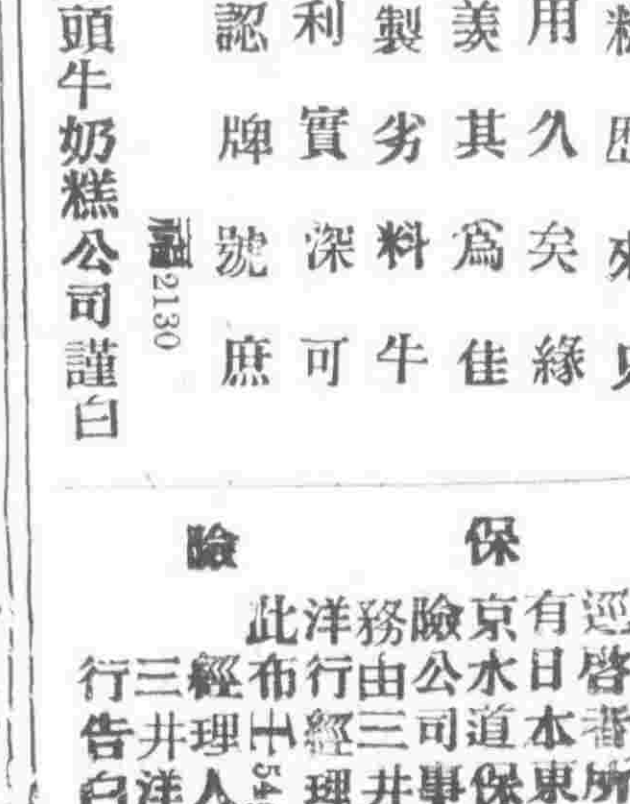 用久矣緣
羨其為佳
製劣料牛
利實深可
認牌號庶
2130
頭牛奶糕公司謹白
保險
逕啓者所
有日本東
京水道保
險公司事
務由三井
洋行經理
此布
經理人
三井洋
行告白